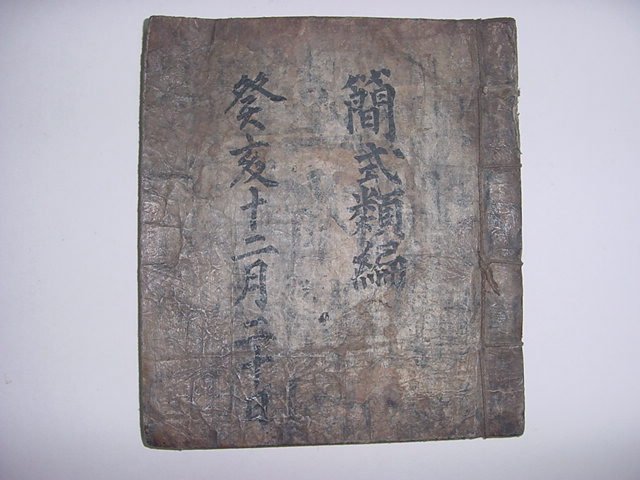 簡式類編
癸亥十二月二十日